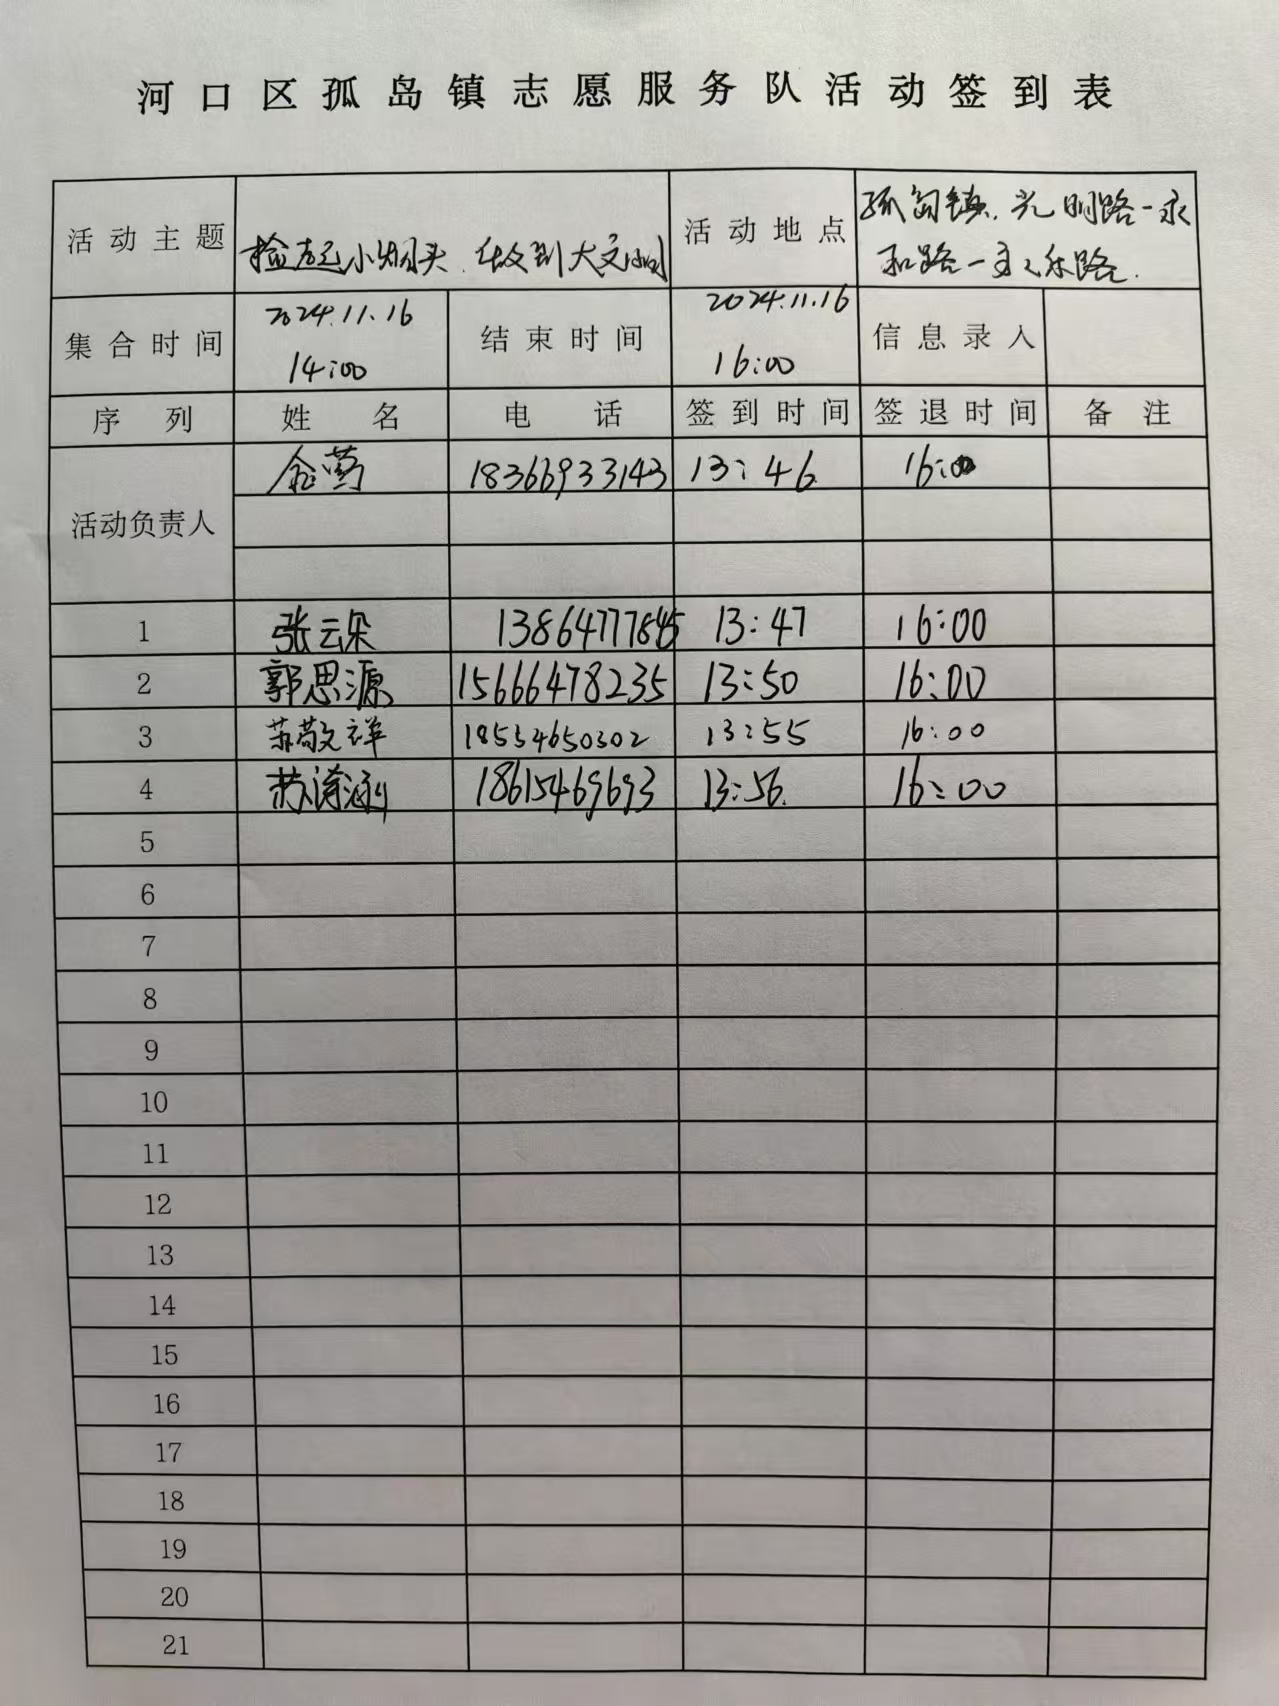 河口区孤岛镇志愿服务队活动签到表
活动主题 捡起小烟头、做到大文明 活动地点 孤岛镇、光明路一永
和路一
集合时间 2024.11.16 14:00 结束时间 2024.11.16 16:00 信息录入
序列 姓名 电话 签到时间 签退时间 备注
活动负责人 18366933143 13:46 16:00
1 张云朵 13:47 16:00
2 郭思源 15666478235 13:50 16:00
3 苏敬祥 18554650302 13:55 16:00
4 苏 18615469693 13:56 16:00
5
6
7
8
9
10
11
12
13
14
15
16
17
18
19
20
21